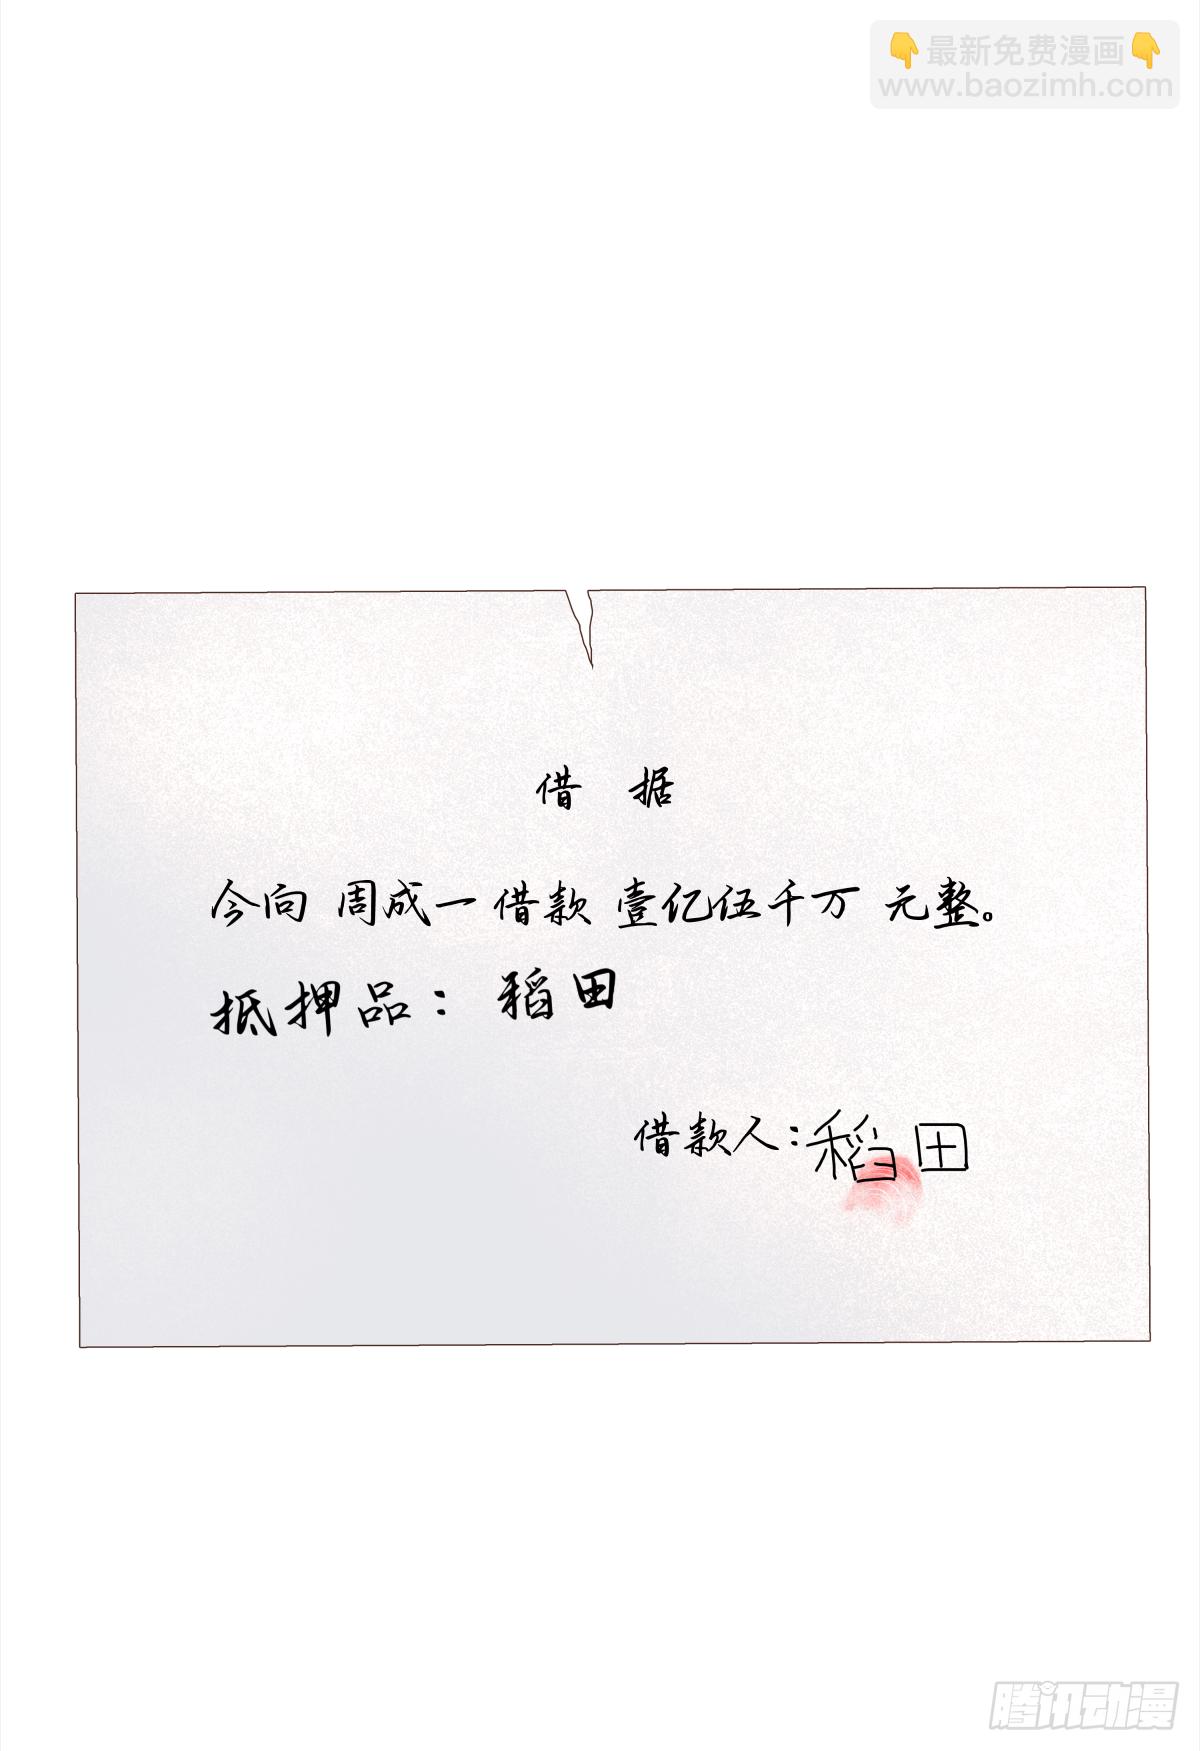 👇最新免费漫画👇
www.baozimh.com
借 据
今向 周成一 借款 壹亿伍千万 元整。
抵押品：稻田
借款人：稻田
腾讯动漫